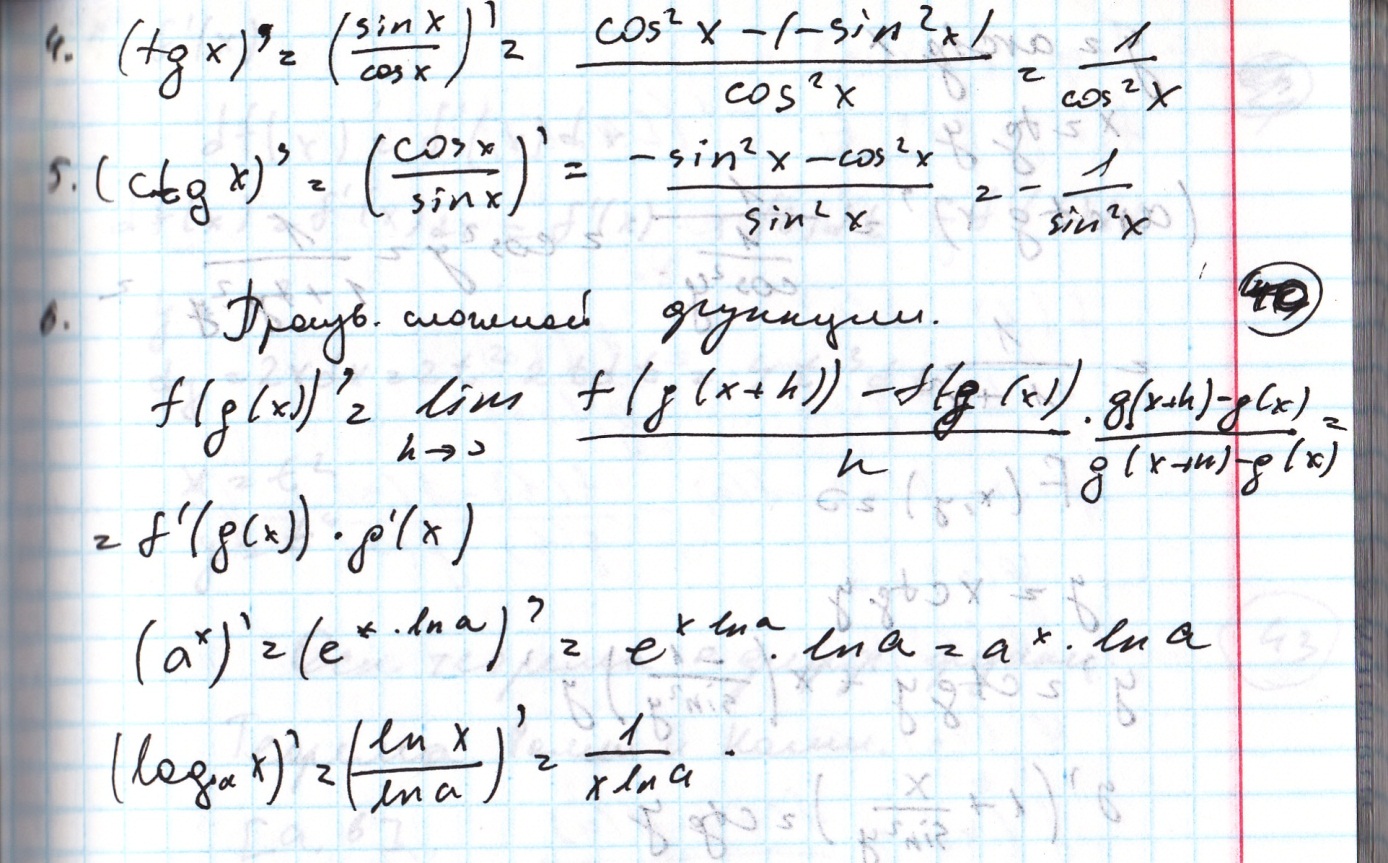 4. (tg x)' = (sin x / cos x)' = (cos² x - (-sin² x)) / cos² x = 1 / cos² x
5. (ctg x)' = (cos x / sin x)' = (-sin² x - cos² x) / sin² x = - 1 / sin² x
6. Произв. сложной функции.
f(g(x))' = lim h→0 (f(g(x+h)) - f(g(x)) / h · (g(x+h) - g(x)) / (g(x+h) - g(x)) =
= f'(g(x)) · g'(x)
(aˣ)' = (e^(x · ln a))' = e^(x ln a) · ln a = aˣ · ln a
(logₐ x)' = (ln x / ln a)' = 1 / (x ln a) .